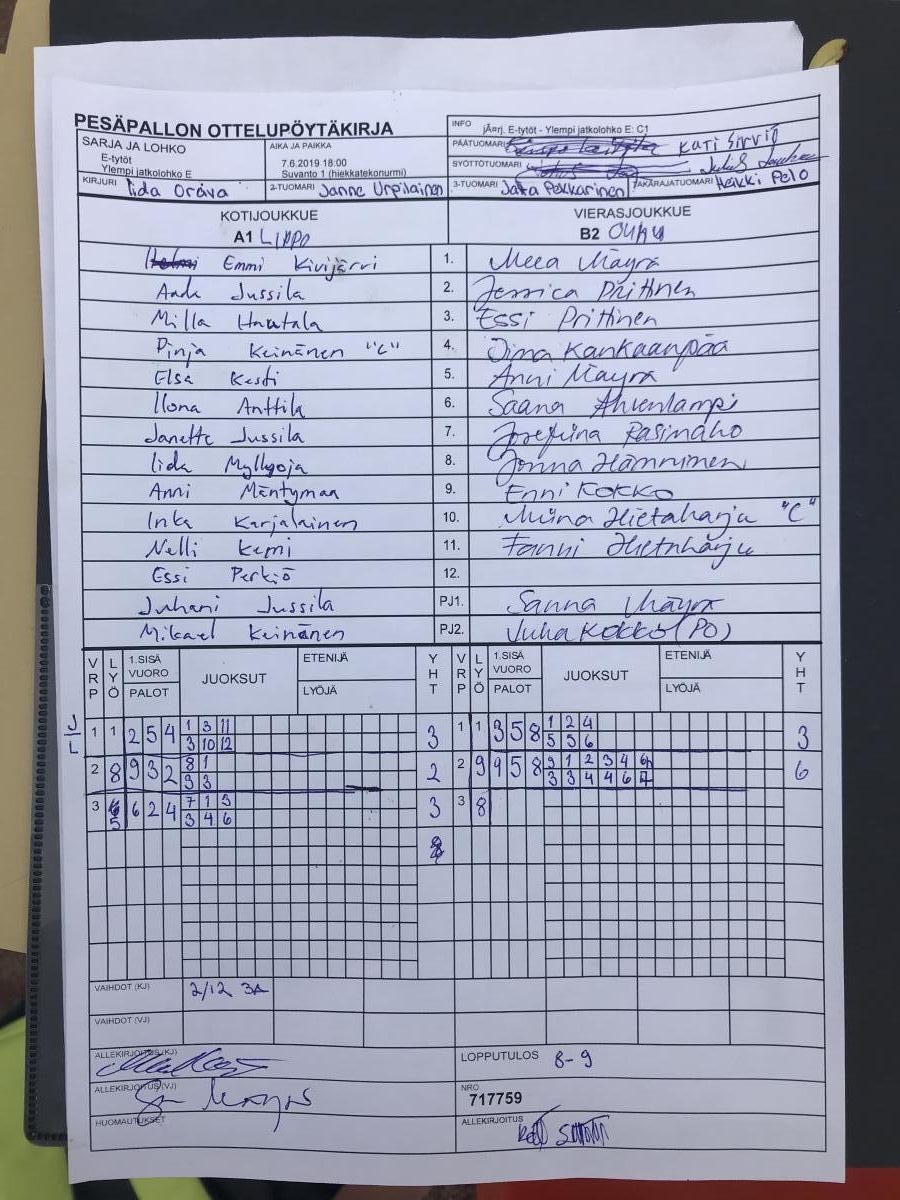 PESÄPALLON OTTELUPÖYTÄKIRJA
SARJA JA LOHKO
E-tytöt
Ylempi jatkolohko E
AIKA JA PAIKKA
7.6.2019 18:00
Suvanto 1 (hiekkatekonurmi)
INFO jÃ¤rj. E-tytöt - Ylempi jatkolohko E: C1
PÄÄTUOMARI Kati Sirviö
SYÖTTÖTUOMARI
KIRJURI Iida Orava
2-TUOMARI Janne Urpilainen
3-TUOMARI Jukka Pekkarinen
TAKARAJATUOMARI Heikki Pelo
KOTIJOUKKUE VIERASJOUKKUE
A1 LIPPO B2 OuHu
Emmi Kivijärvi 1. Meea Mäyrä
Anda Jussila 2. Jessica Prittinen
Milla Hautala 3. Essi Prittinen
Pinja Keinänen "C" 4. Oima Kankaanpää
Elsa Kesti 5. Anni Mäyrä
Ilona Anttila 6. Saana Ahvenlampi
Janette Jussila 7. Josefiina Pasinaho
Iida Myllyoja 8. Jonna Hänninen
Anni Mäntymaa 9. Enni Kokko
Inka Karjalainen 10. Miina Hietaharju "C"
Nelli Kemi 11. Fanni Hietaharju
Essi Perkiö 12.
Juhani Jussila PJ1. Sanna Mäyrä
Mikael Keinänen PJ2. Juha Kokko (PO)
VRP LYÖ 1.SISÄ VUORO PALOT JUOKSUT ETENIJÄ LYÖJÄ YHT VRP LYÖ 1.SISÄ VUORO PALOT JUOKSUT ETENIJÄ LYÖJÄ YHT
J/L
1 1 2 5 4 1 3 11 3 1 1 3 5 8 1 2 4 3
3 10 12 5 5 6
2 8 9 3 2 8 1 2 2 9 9 5 8 9 1 2 3 4 6 6
3 3 3 3 4 4 6 7
3 5 6 2 4 7 1 3 3 3 8
3 4 6
8
VAIHDOT (KJ) 2/12 3A
VAIHDOT (VJ)
ALLEKIRJOITUS (KJ)
LOPPUTULOS 8-9
ALLEKIRJOITUS (VJ)
NRO
717759
HUOMAUTUKSET
ALLEKIRJOITUS